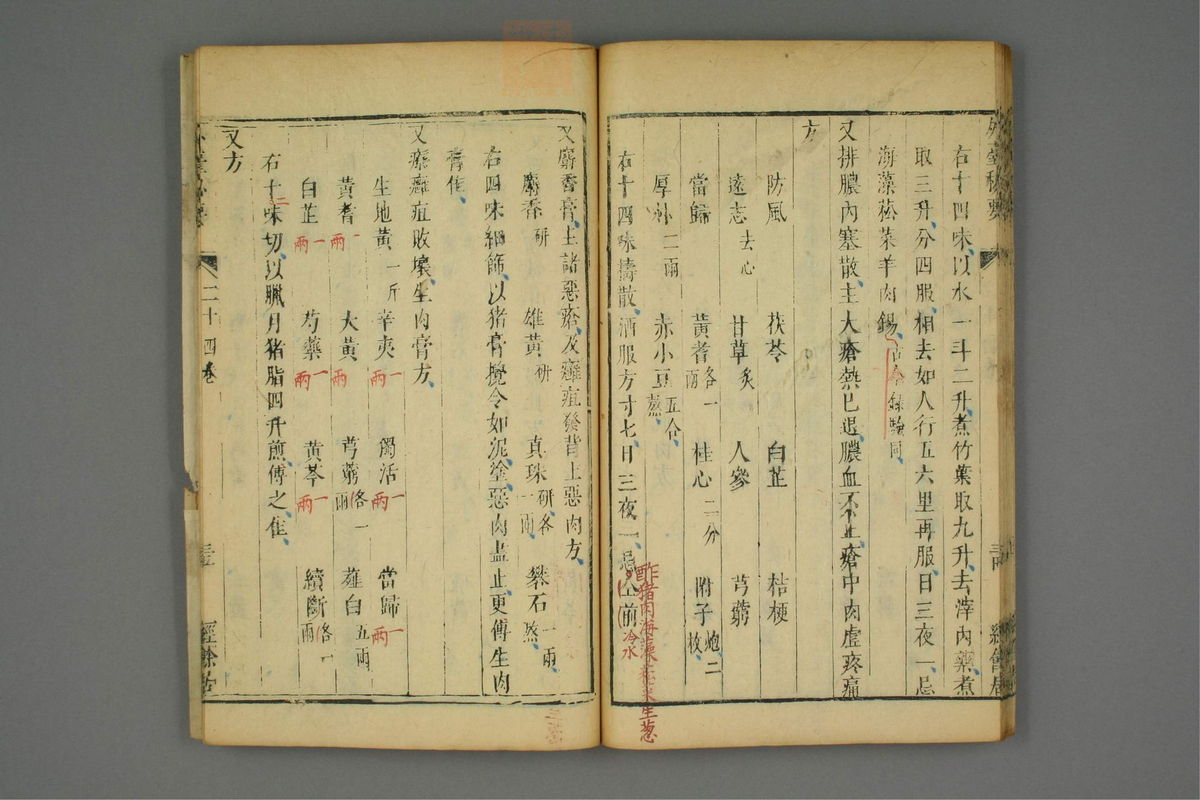 右十四味以水一斗二升煮竹葉取九升去滓內藥煮
取三升分四服相去如人行五六里再服日三夜一忌
海藻菘菜羊肉餳古今錄驗同
又排膿內塞散主大瘡熱已退膿血不止瘡中肉虛疼痛
方
防風 茯苓 白芷 桔梗
遠志去心 甘草炙 人參 芎藭
當歸 黃耆各一兩 桂心二分 附子炮二枚
厚朴二兩 赤小豆五合蒸
右十四味擣散酒服方寸匕日三夜一忌仝前
酢猪肉海藻菘米生葱
冷水
又麝香膏主諸惡瘡及癰疽發背上惡肉方
麝香研 雄黃研 真珠研各一兩 礬石一兩蒸
右四味細篩以猪膏攪令如泥塗惡肉盡止更傅生肉
膏佳
又療癰疽敗壞生肉膏方
生地黃一斤 辛夷一兩 獨活一兩 當歸一兩
黃耆一兩 大黃兩 芎藭各一兩 薤白五兩
白芷一兩 芍藥一兩 黃芩一兩 續斷各一兩
右十二味切以臘月猪脂四升煎傅之佳
又方
外臺秘要
二十四卷
經餘居